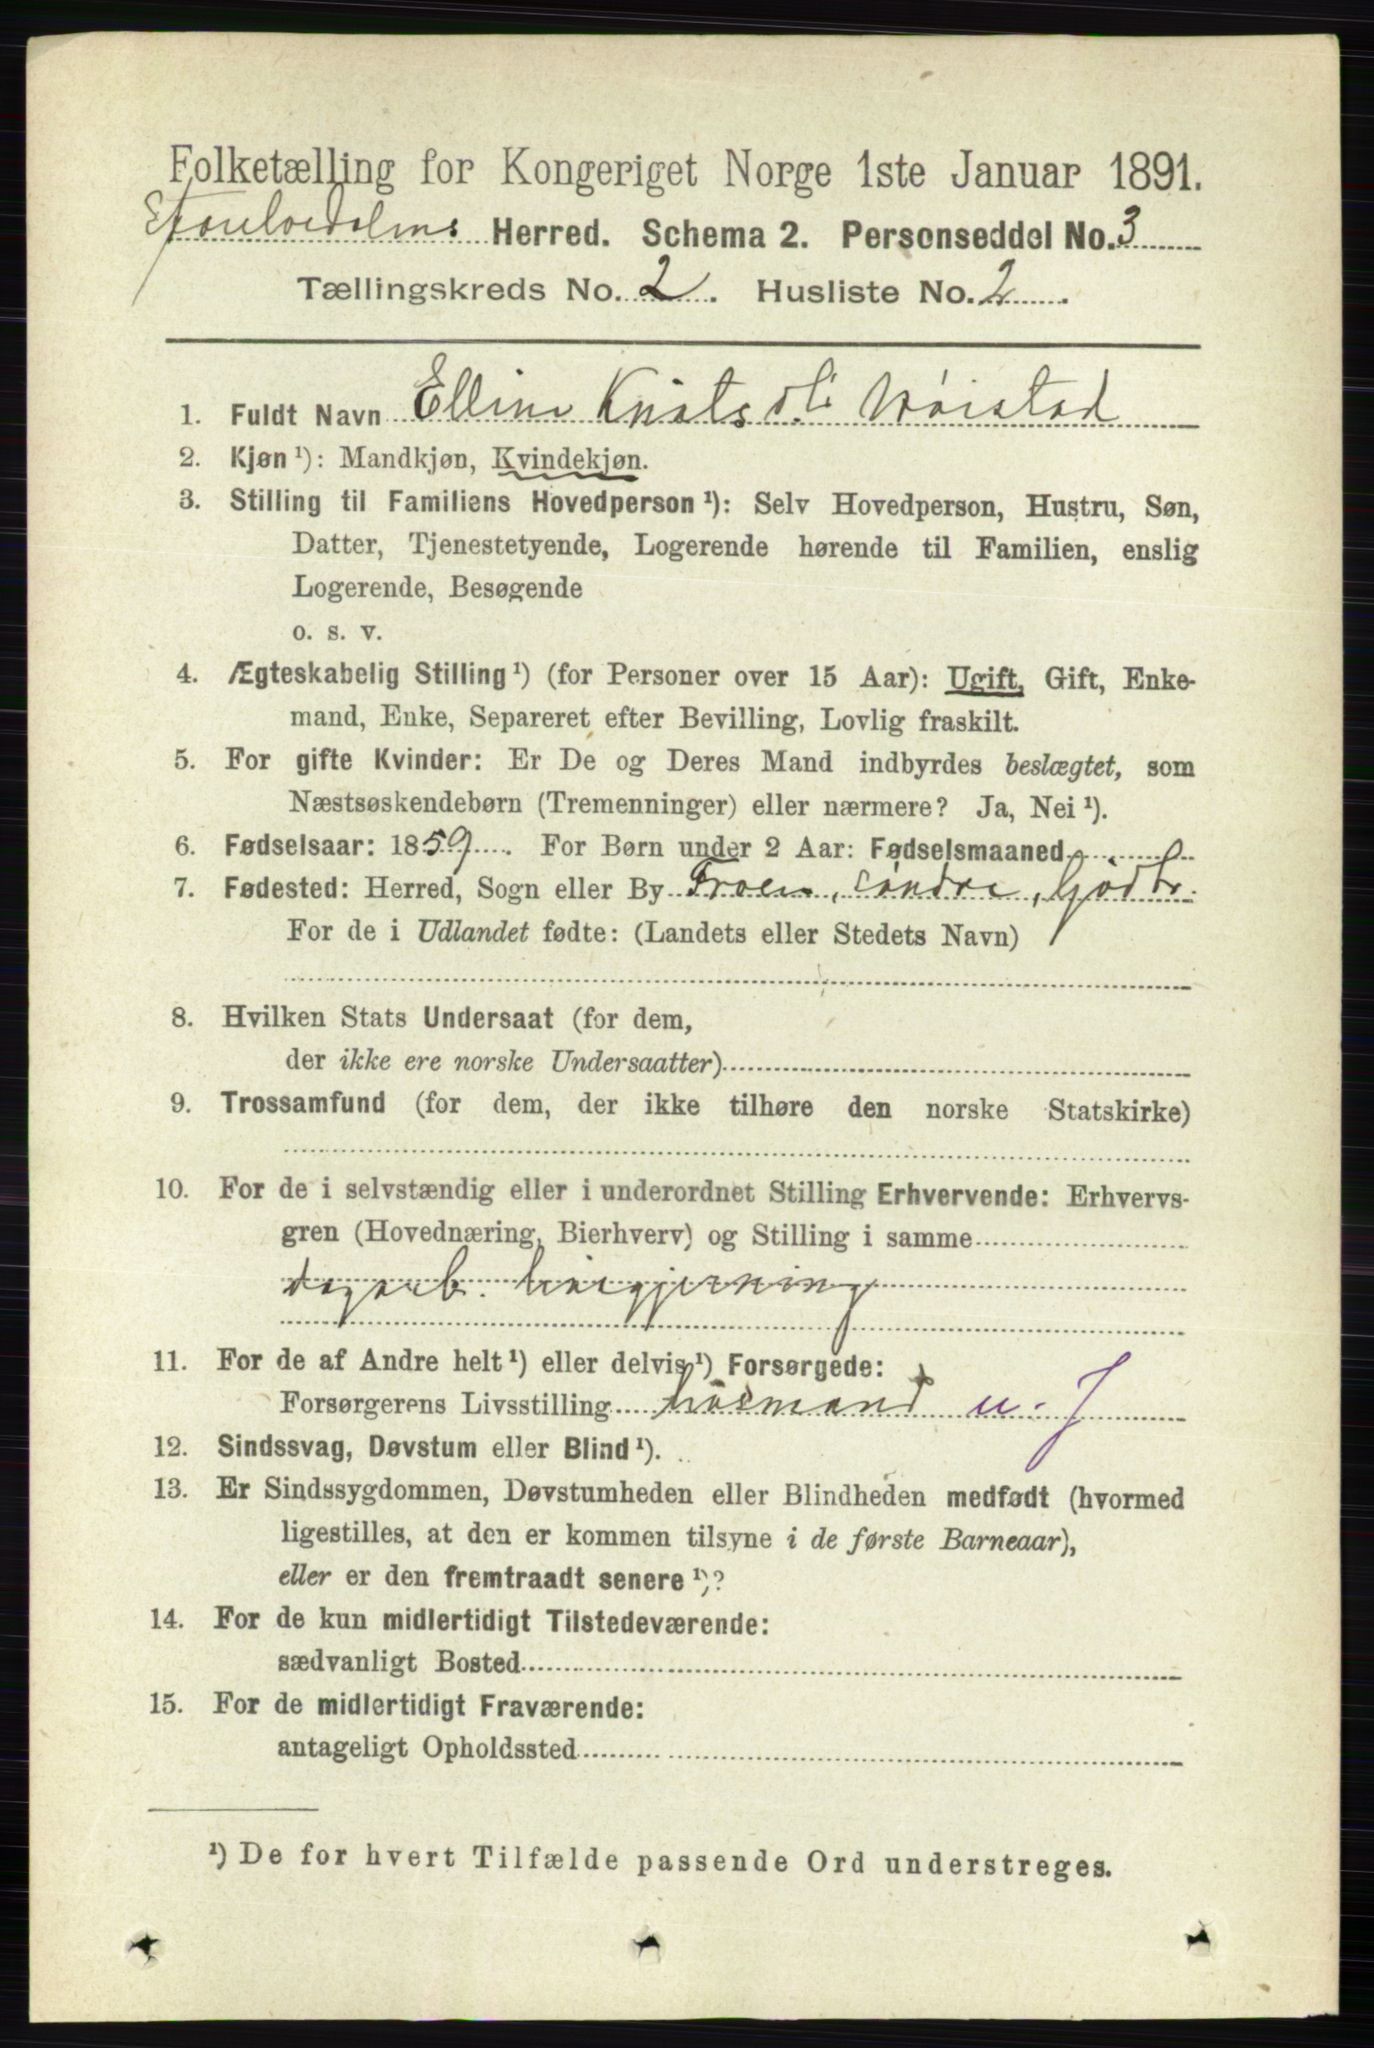 Folketælling for Kongeriget Norge 1ste Januar 1891.
Herred. Schema 2. Personseddel No. 3
Tællingskreds No. 2. Husliste No. 2.
1. Fuldt Navn Elline Knuts
2. Kjøn ¹): Mandkjøn, Kvindekjøn.
3. Stilling til Familiens Hovedperson ¹): Selv Hovedperson, Hustru, Søn,
Datter, Tjenestetyende, Logerende hørende til Familien, enslig
Logerende, Besøgende
o. s. v.
4. Ægteskabelig Stilling ¹) (for Personer over 15 Aar): Ugift, Gift, Enke-
mand, Enke, Separeret efter Bevilling, Lovlig fraskilt.
5. For gifte Kvinder: Er De og Deres Mand indbyrdes beslægtet, som
Næstsøskendebørn (Tremenninger) eller nærmere? Ja, Nei ¹).
6. Fødselsaar: 1859. For Børn under 2 Aar: Fødselsmaaned
7. Fødested: Herred, Sogn eller By Froen, söndre, Gudbr.
For de i Udlandet fødte: (Landets eller Stedets Navn)
8. Hvilken Stats Undersaat (for dem,
der ikke ere norske Undersaatter)
9. Trossamfund (for dem, der ikke tilhøre den norske Statskirke)
10. For de i selvstændig eller i underordnet Stilling Erhvervende: Erhvervs-
gren (Hovednæring, Bierhverv) og Stilling i samme
dagarb. husgjerning
11. For de af Andre helt ¹) eller delvis ¹) Forsørgede:
Forsørgerens Livsstilling husmand u. J
12. Sindssvag, Døvstum eller Blind ¹).
13. Er Sindssygdommen, Døvstumheden eller Blindheden medfødt (hvormed
ligestilles, at den er kommen tilsyne i de første Barneaar),
eller er den fremtraadt senere ¹)?
14. For de kun midlertidigt Tilstedeværende:
sædvanligt Bosted
15. For de midlertidigt Fraværende:
antageligt Opholdssted
¹) De for hvert Tilfælde passende Ord understreges.